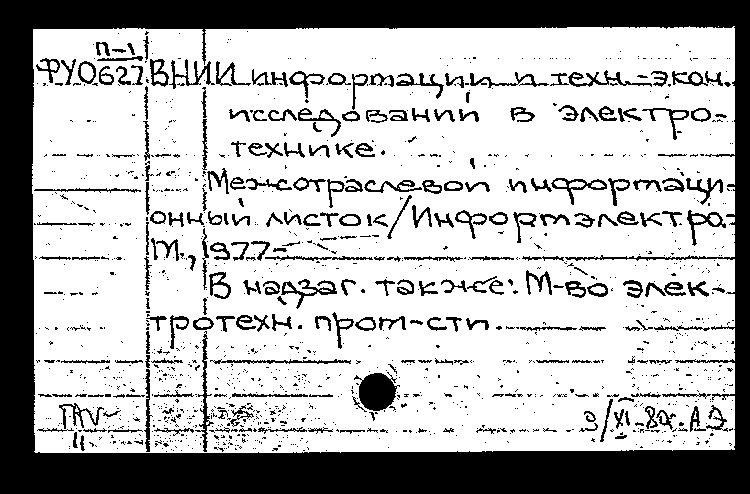 П-1
ФУ0627 ВНИИ информации и техн.-экон.
исследований в электро-
технике.
Межотраслевой информаци-
онный листок/Информэлектро.-
М., 1977-
В надзаг. также: М-во элек-
тротехн. пром-сти.
9/XI-
А.Э